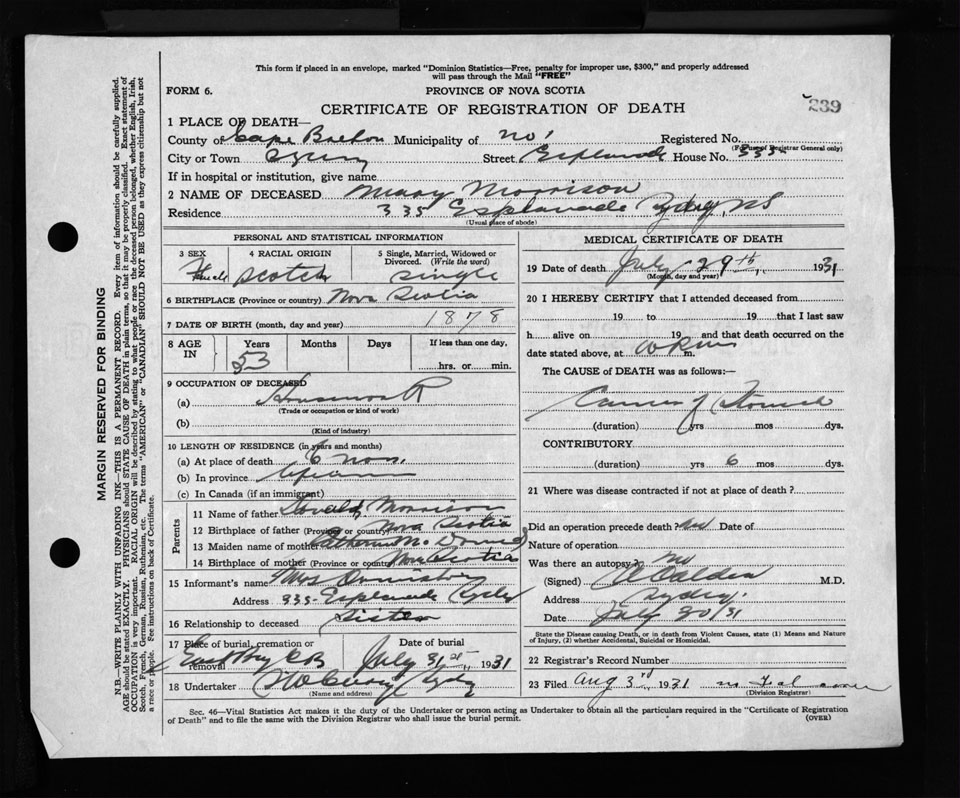 This form if placed in an envelope, marked "Dominion Statistics—Free, penalty for improper use, $300," and properly addressed
will pass through the Mail "FREE"
FORM 6.
PROVINCE OF NOVA SCOTIA
CERTIFICATE OF REGISTRATION OF DEATH
239
1 PLACE OF DEATH—
County of Cape Breton Municipality of no' Registered No.
(For use of Registrar General only)
City or Town Street Esplanade House No. 335
If in hospital or institution, give name
2 NAME OF DECEASED Mary Morrison
Residence 335 Esplanade Sydney NS
(Usual place of abode)
PERSONAL AND STATISTICAL INFORMATION
3 SEX 4 RACIAL ORIGIN 5 Single, Married, Widowed or
Divorced. (Write the word)
Female Scotch Single
6 BIRTHPLACE (Province or country) Nova Scotia
7 DATE OF BIRTH (month, day and year) 1878
8 AGE IN Years Months Days If less than one day,
53 hrs. or min.
9 OCCUPATION OF DECEASED
(a) Housework
(Trade or occupation or kind of work)
(b)
(Kind of industry)
10 LENGTH OF RESIDENCE (in years and months)
(a) At place of death 6 mos.
(b) In province Life
(c) In Canada (if an immigrant)
Parents
11 Name of father Donald Morrison
12 Birthplace of father (Province or country) Nova Scotia
13 Maiden name of mother Catherine McDonald
14 Birthplace of mother (Province or country) Nova Scotia
15 Informant's name Mrs Ormiston
Address 335 Esplanade Sydney
16 Relationship to deceased Sister
17 Place of burial, cremation or removal Date of burial
East Bay CB July 31st, 1931
18 Undertaker Sydney
(Name and address)
MEDICAL CERTIFICATE OF DEATH
19 Date of death July 29th, 1931
(Month, day and year)
20 I HEREBY CERTIFY that I attended deceased from
19 to 19 that I last saw
h alive on 19 and that death occurred on the
date stated above, at m.
The CAUSE of DEATH was as follows:—
Cancer of Stomach
(duration) yrs mos dys.
CONTRIBUTORY
(duration) yrs 6 mos dys.
21 Where was disease contracted if not at place of death?
Did an operation precede death? Date of
Nature of operation
Was there an autopsy? no
(Signed) M.D.
Address Sydney
Date July 30/31
State the Disease causing Death, or in death from Violent Causes, state (1) Means and Nature
of Injury, (2) whether Accidental, Suicidal or Homicidal.
22 Registrar's Record Number
23 Filed Aug 3rd 1931
(Division Registrar)
Sec. 46—Vital Statistics Act makes it the duty of the Undertaker or person acting as Undertaker to obtain all the particulars required in the "Certificate of Registration
of Death" and to file the same with the Division Registrar who shall issue the burial permit.
(OVER)
MARGIN RESERVED FOR BINDING
N.B.—WRITE PLAINLY WITH UNFADING INK—THIS IS A PERMANENT RECORD. Every item of information should be carefully supplied.
AGE should be stated EXACTLY. PHYSICIANS should STATE CAUSE OF DEATH in plain terms, so that it may be properly classified. Exact statement of
OCCUPATION is very important. RACIAL ORIGIN will be described by stating to what people or race the deceased person belonged, whether English, Irish,
Scotch, French, German, Russian, Ruthenian, etc. The terms "AMERICAN" or "CANADIAN" SHOULD NOT BE USED as they express citizenship but not
a race or people. See instructions on back of Certificate.